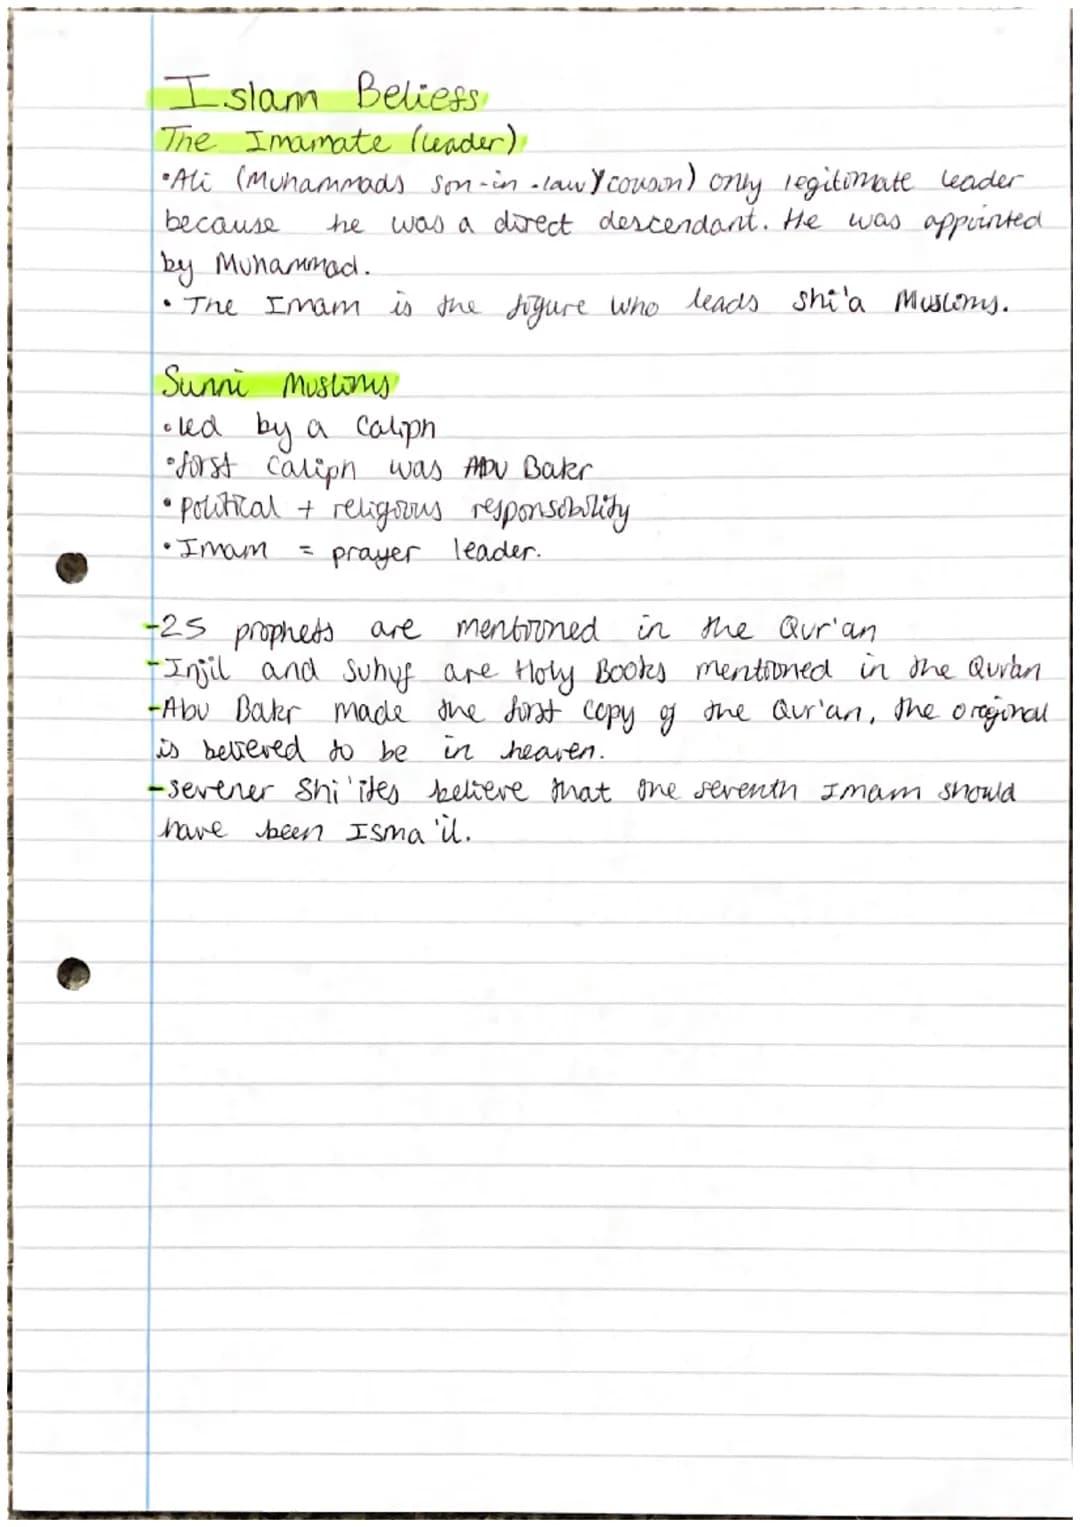 Islam Beliefs
The Imamate (leader)
•Ali (Muhammads son-in-law/cousin) only legitimate leader
because he was a direct descendant. He was appointed
by Muhammad.
• The Imam is the figure who leads Shi'a Muslims.
Sunni Muslims
•led by a Caliph
•first Caliph was Abu Bakr
•political + religious responsibility
•Imam = prayer leader.
-25 prophets are mentioned in the Qur'an
-Injil and Suhuf are Holy Books mentioned in the Qur'an
-Abu Bakr made the first copy of the Qur'an, the original
is believed to be in heaven.
-sevener Shi'ites believe that the seventh Imam should
have been Isma'il.